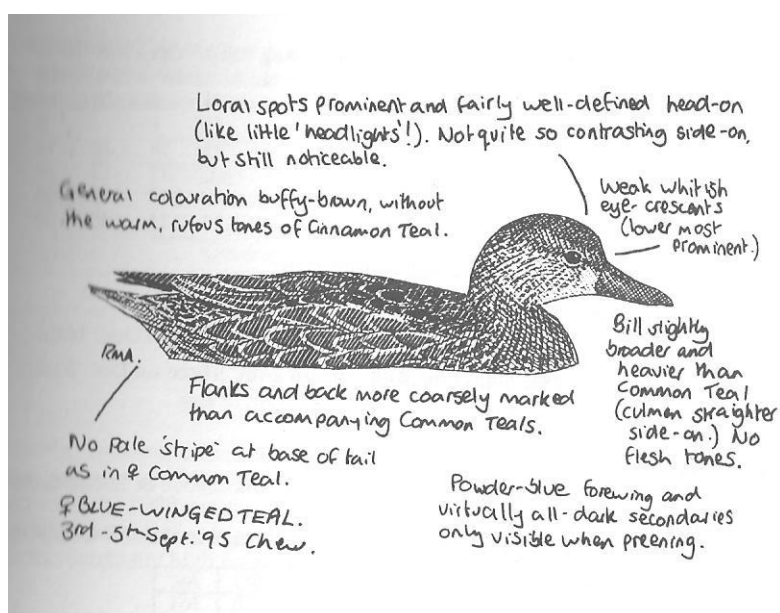 Loral spots prominent and fairly well-defined head-on
(like little 'headlights'!). Not quite so contrasting side-on,
but still noticeable.
General colouration buffy-brown, without
the warm, rufous tones of Cinnamon Teal.
Weak whitish
eye-crescents
(lower most
prominent.)
RMA.
Bill slightly
broader and
heavier than
Common Teal
(culmen straighter
side-on.) No
flesh tones.
Flanks and back more coarsely marked
than accompanying Common Teals.
No pale 'stripe' at base of tail
as in ♀ Common Teal.
♀ BLUE-WINGED TEAL.
3rd-5th Sept. '95 Chew.
Powder-blue forewing and
virtually all-dark secondaries
only visible when preening.